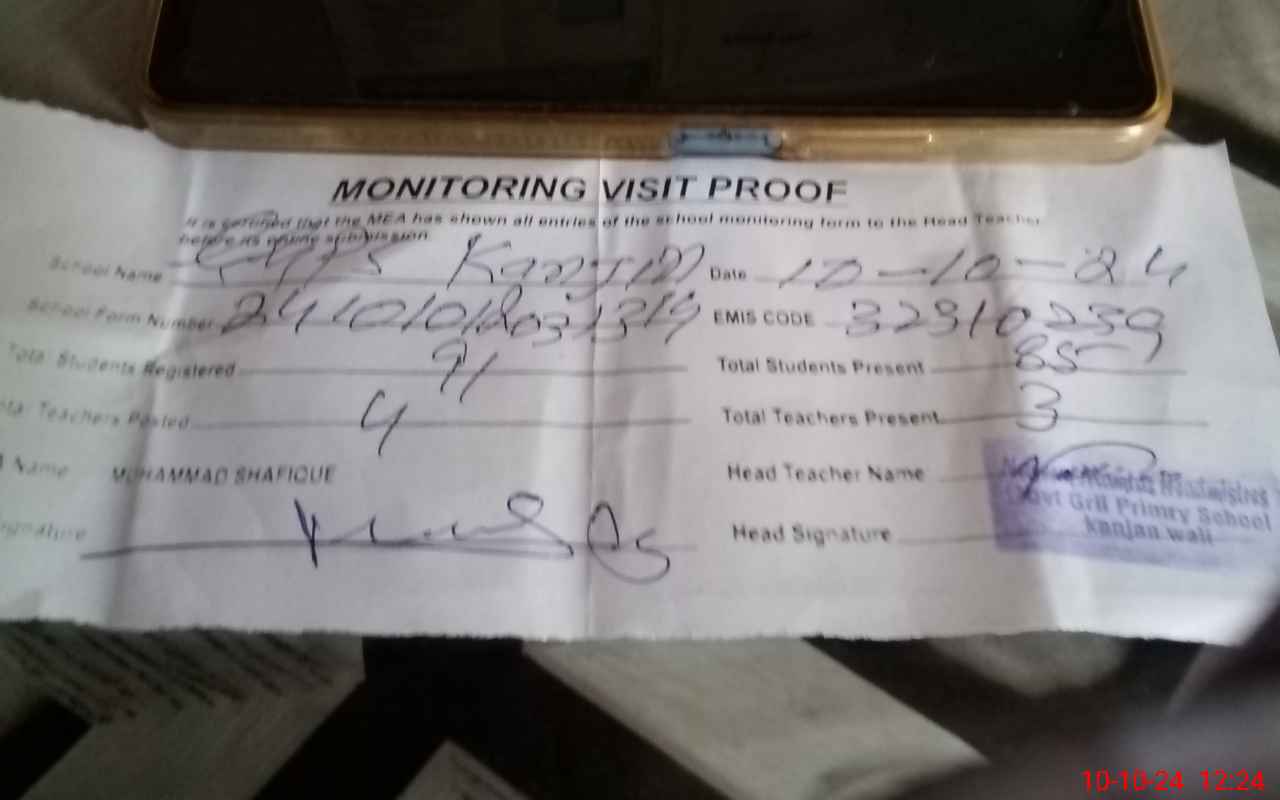 MONITORING VISIT PROOF
It is certified that the MEA has shown all entries of the school monitoring form to the Head Teacher
before its online submission
School Name Date 10-10-24
School Form Number EMIS CODE 32310239
Total Students Registered 91 Total Students Present 85
Total Teachers Posted 4 Total Teachers Present 3
Name MUHAMMAD SHAFIQUE Head Teacher Name
Signature Head Signature
Govt Grll Primry School
kanjan wali
10-10-24 12:24